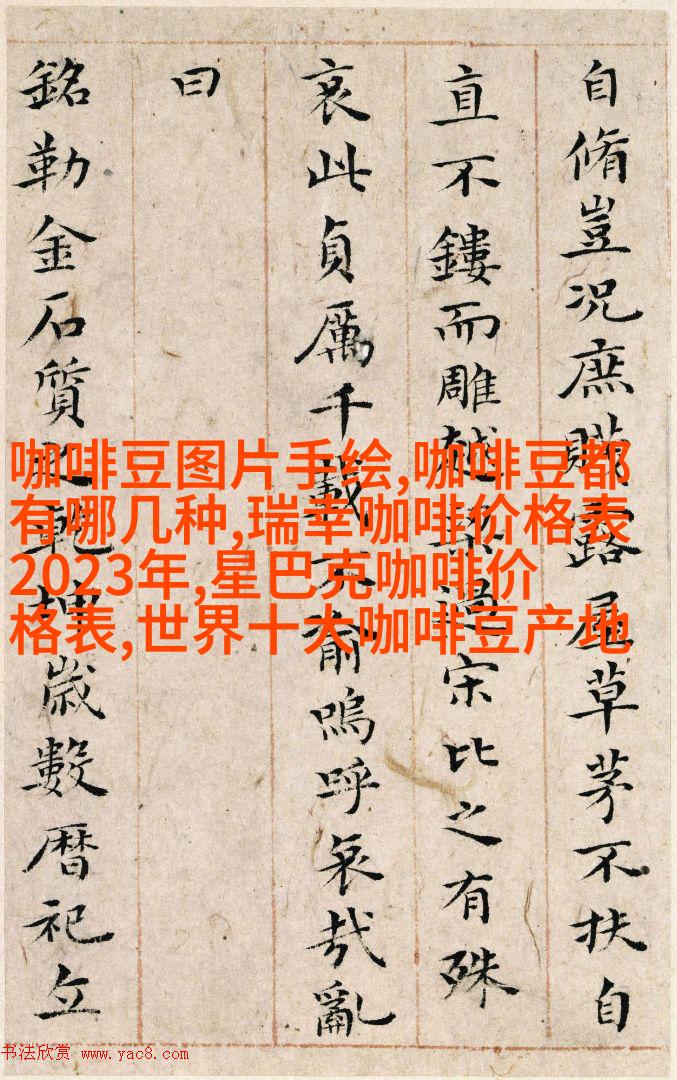 自脩豈况庶賤露屋草茅不扶自
直不鏤而雕越梁過宋比之有殊
哀此貞厲千載不渝嗚呼哀哉亂
曰
銘勒金石質之乾坤歲數暦祀立
咖啡豆图片手绘,咖啡豆都
有哪几种,瑞幸咖啡价格表
2023年,星巴克咖啡价
格表,世界十大咖啡豆产地
书法欣赏 www.yac8.com